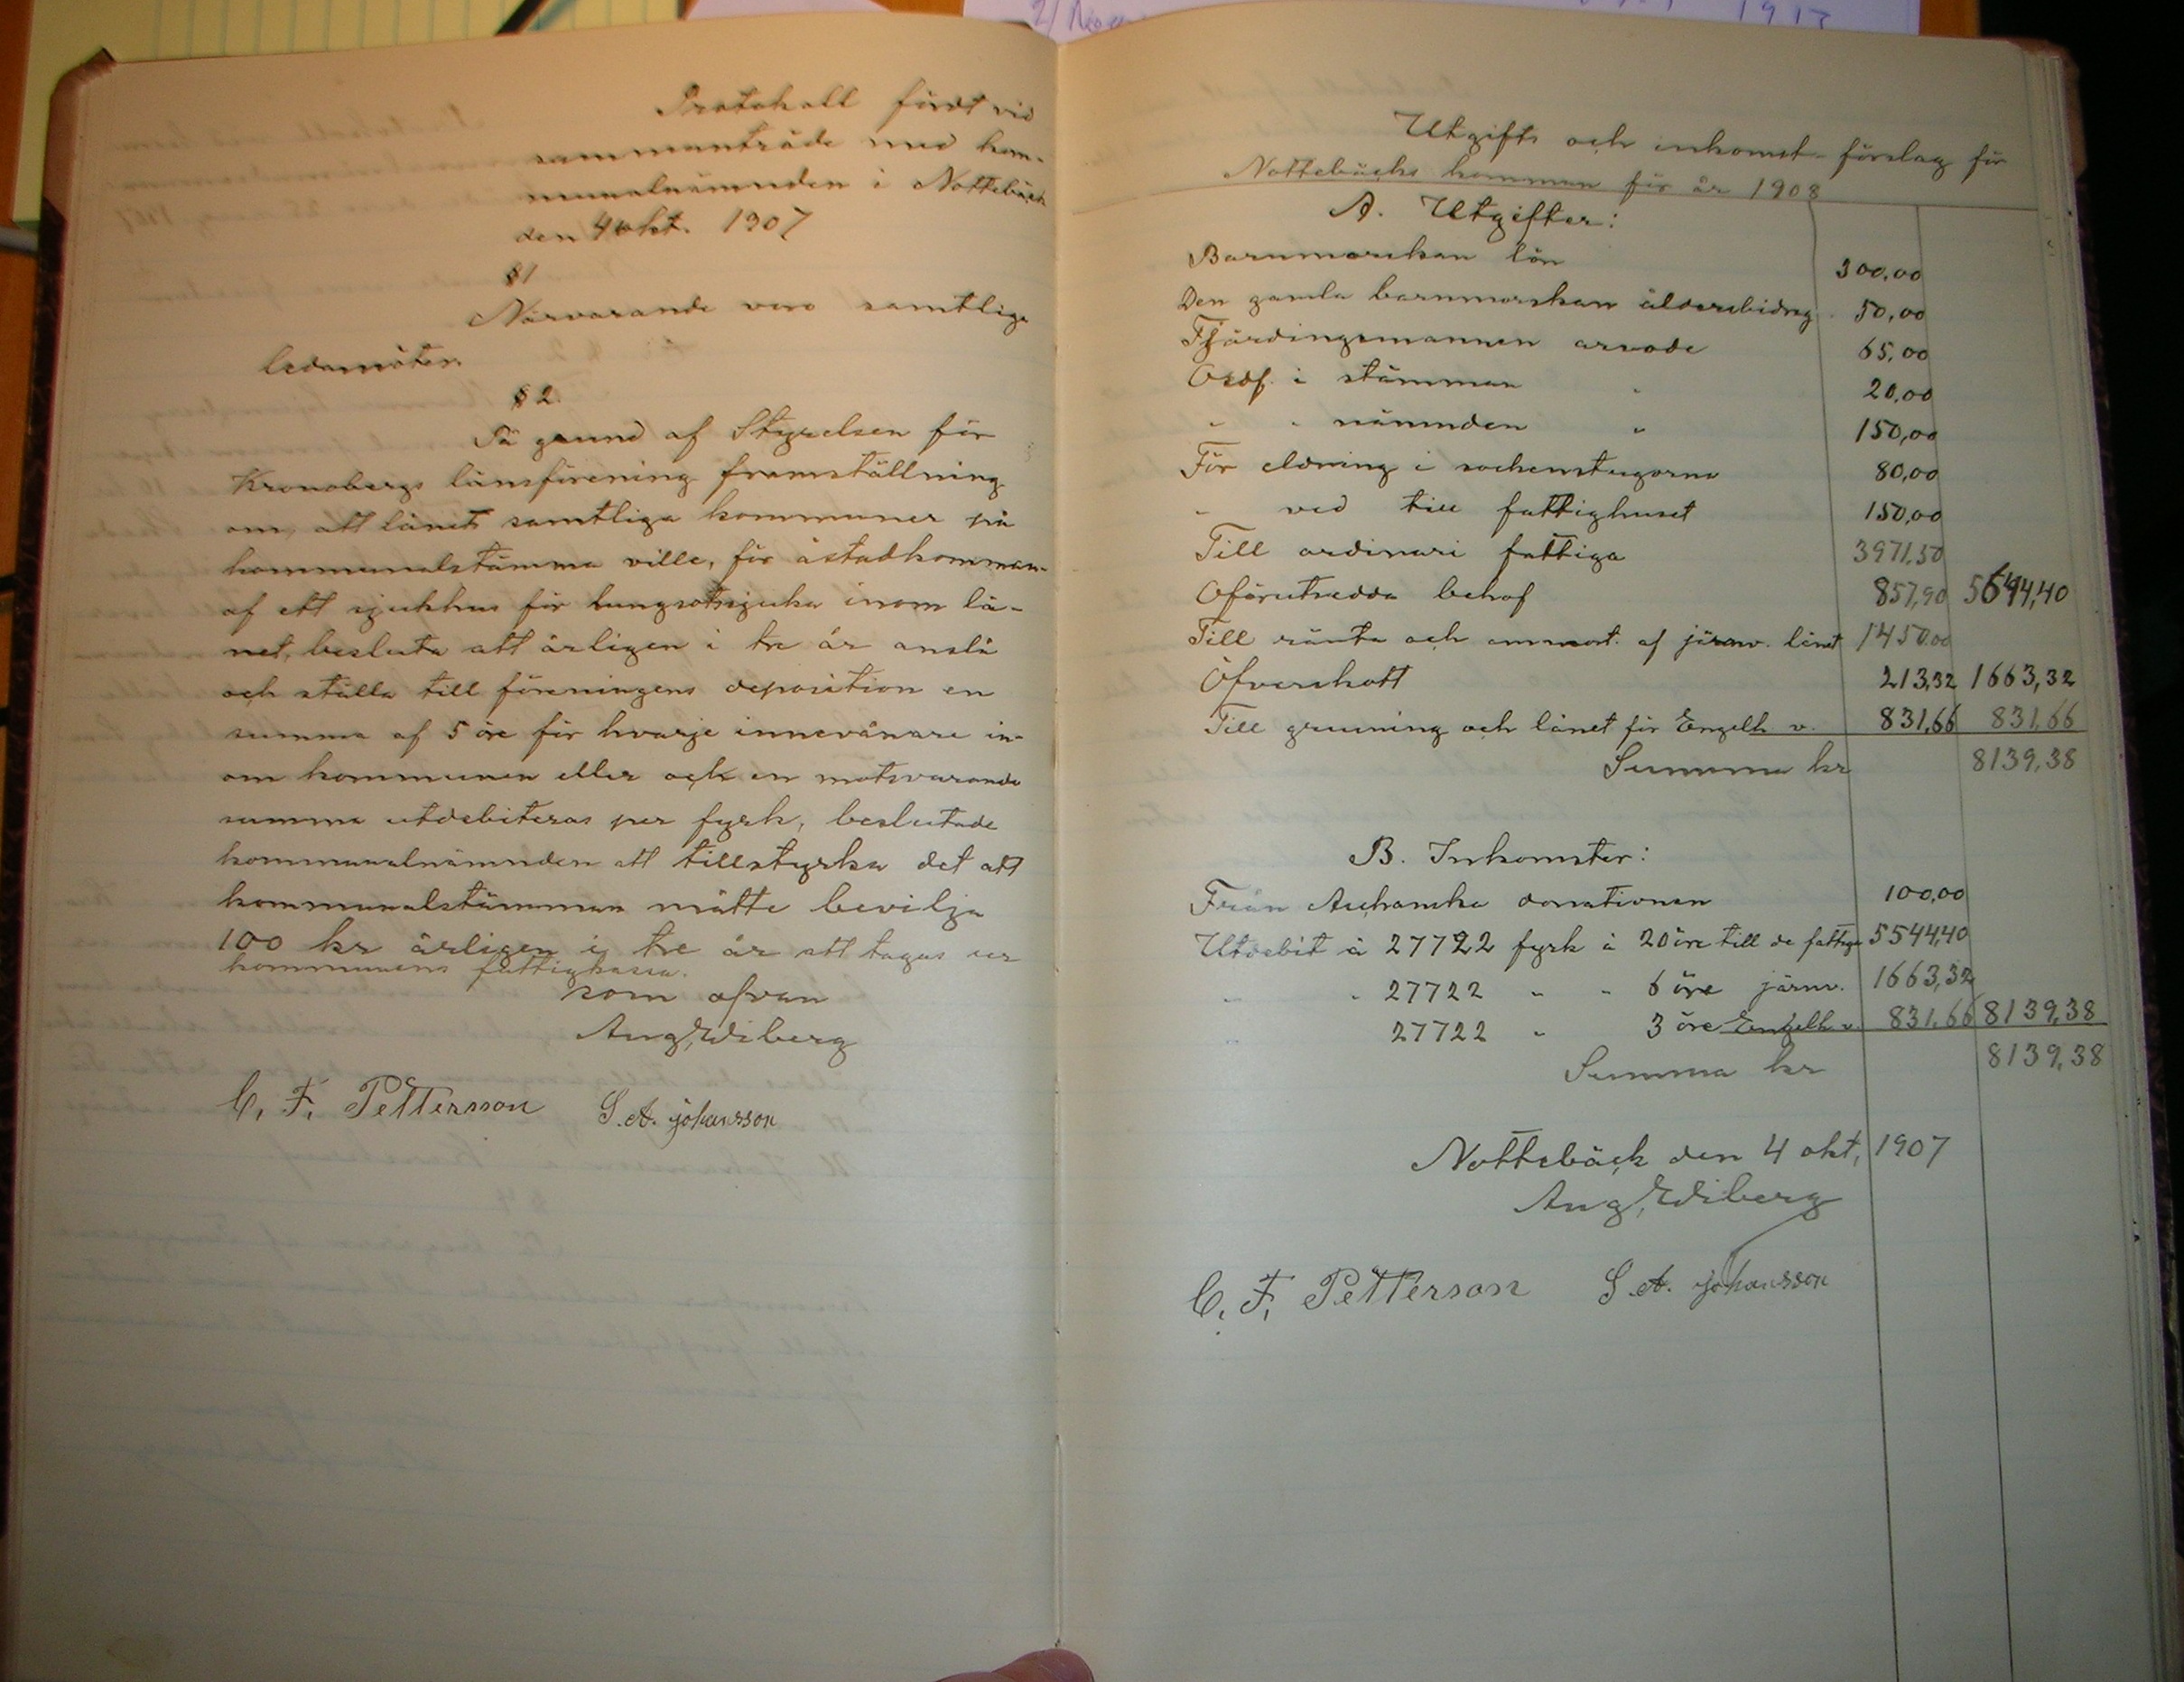 Protokoll fördt vid
sammanträde med kom-
munalnämnden i Nottebäck
den 4 okt. 1907
§1
Närvarande voro samtliga
ledamöter.
§2.
På grund af Styrelsen för
Kronobergs länsförening framställning
om, att länets samtliga kommuner på
kommunalstämma ville, för åstadkomman-
af ett sjukhus för lungsotsjuka inom lä-
net, besluta att årligen i tre år anslå
och ställa till föreningens deposition en
summa af 5 öre för hvarje innevånare in-
om kommunen eller ock en motsvarande
summa utdebiteras per fyrk, beslutade
kommunalnämnden att tillstyrka det att
kommunalstämman måtte bevilja
100 kr årligen i tre år att tagas ur
kommunens fattigkassa.
som ofvan
Aug, Wiberg
C. F. Pettersson S. A. Johansson
Utgifts och inkomst-förslag för
Nottebäcks kommun för år 1908
A. Utgifter:
Barnmorskan lön 300,00
Den gamla barnmorskan åldersbidrag 50,00
Fjärdingsmannen arvode 65,00
Ordf. i stämman " 20,00
" " nämnden " 150,00
För eldning i sockenstugorna 80,00
" ved till fattighuset 150,00
Till ordinari fattiga 3971,50
Oförutsedda behof 857,90 5644,40
Till ränta och ammort. af järnv. lånet 1450.00
Öfverskott 213,32 1663,32
Till grusning och lånet för Engelh v. 831,66 831,66
Summa kr 8139,38
B. Inkomster:
Från Aschanska donationen 100,00
Utdebit å 27722 fyrk à 20 öre till de fattiga 5544,40
" " 27722 " " 6 öre järnv. 1663,32
" 27722 " 3 öre Engelh v. 831,66 8139,38
Summa kr 8139,38
Nottebäck den 4 okt, 1907
Aug, Wiberg
C. F. Petterson S. A. Johansson